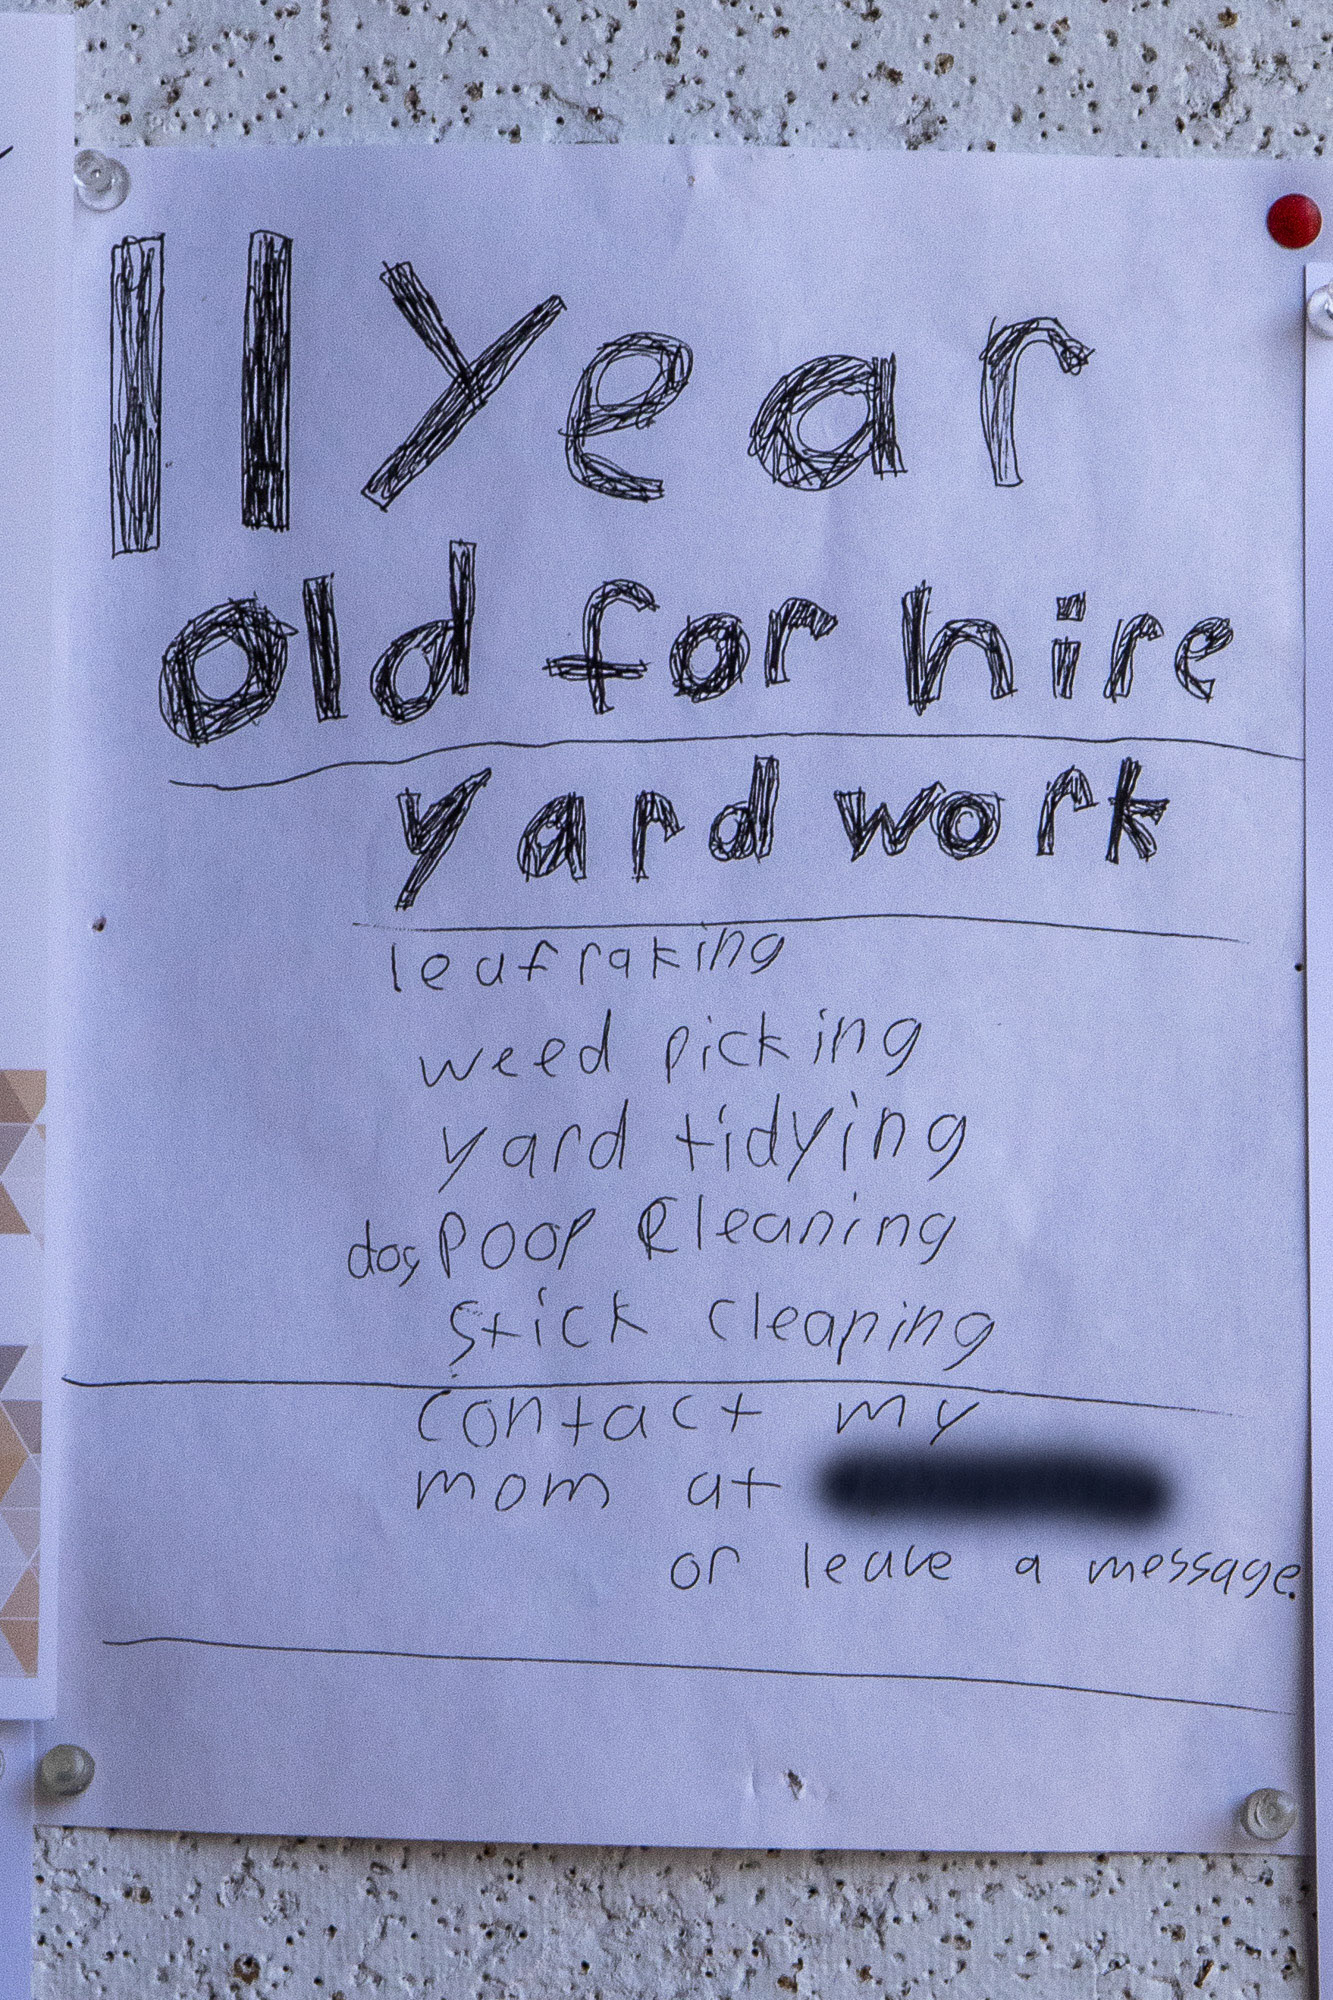 11 Year
old for hire
yard work
leaf raking
weed picking
yard tidying
dog poop cleaning
stick cleaning
contact my
mom at
or leave a message.